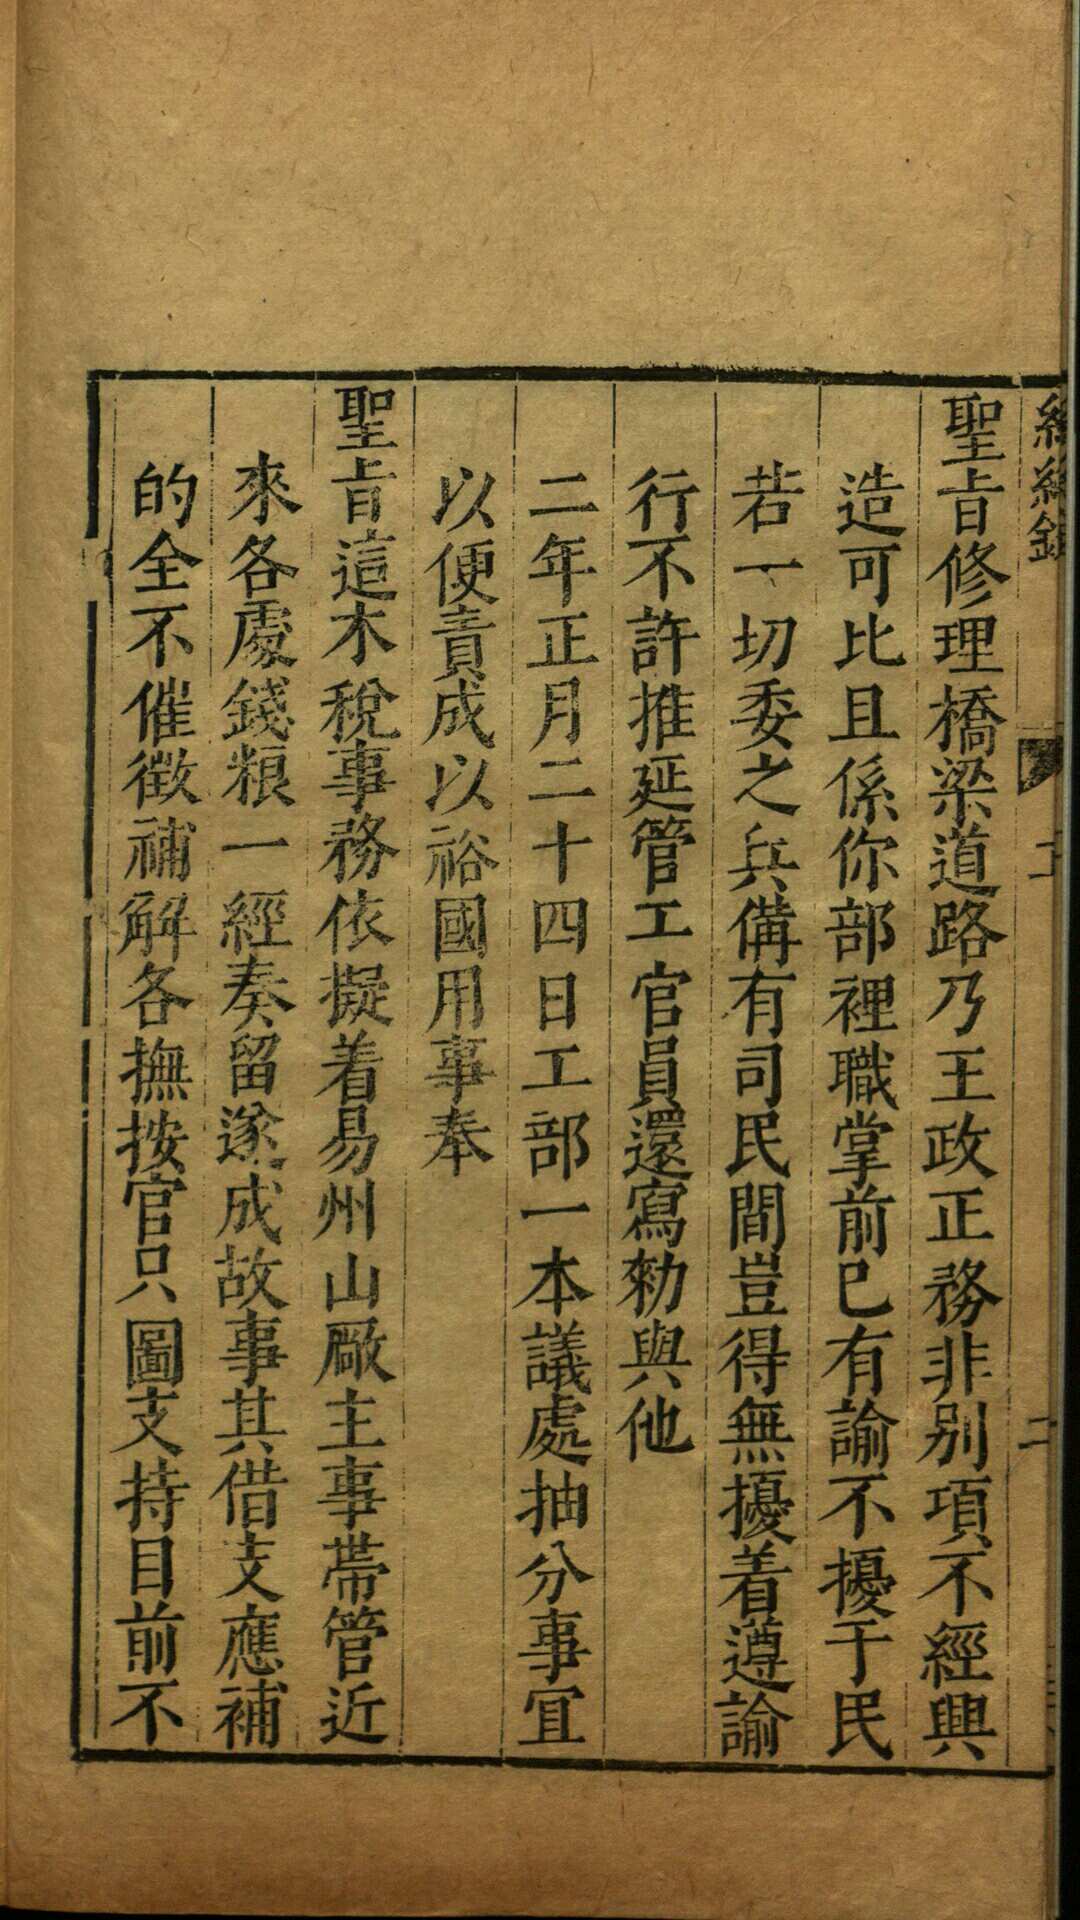 聖旨修理橋梁道路乃王政正務非别項不經興
造可比且係你部裡職掌前已有諭不擾于民
若一切委之兵備有司民間豈得無擾着遵諭
行不許推延管工官員還寫勑與他
二年正月二十四日工部一本議處抽分事宜
以便責成以裕國用事奉
聖旨這木稅事務依擬着易州山厰主事帶管近
來各處錢粮一經奏留遂成故事其借支應補
的全不催徵補解各撫按官只圖支持目前不